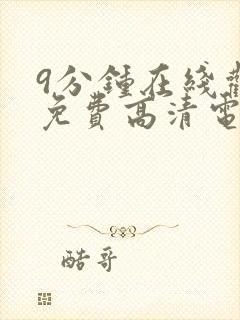 9分鍾在綫觀
免費高清電
酷哥